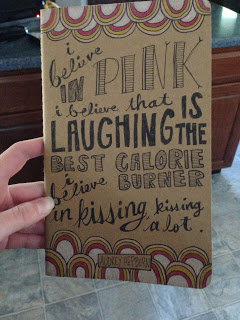 i
believe
IN PINK
i believe that
LAUGHING IS
THE
BEST CALORIE
BURNER
i
believe
in kissing, kissing
a lot.
AUDREY HEPBURN